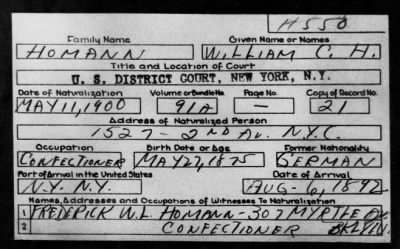 H550
Family Name Given Name or Names
HOMANN WILLIAM C. H.
Title and Location of Court
U. S. DISTRICT COURT, NEW YORK, N.Y.
Date of Naturalization Volume or Bundle No Page No. Copy of Record No.
MAY 11, 1900 91A — 21
Address of Naturalized Person
1527 - 2ND AV. N.Y.C.
Occupation Birth Date or Age Former Nationality
CONFECTIONER MAY 27, 1875 GERMAN
Port of Arrival in the United States Date of Arrival
N.Y. N.Y. AUG - 6, 1892
Names, Addresses and Occupations of Witnesses To Naturalization
1 FREDERICK W.L. HOMANN - 307 MYRTLE AV.
2 CONFECTIONER BKLYN.